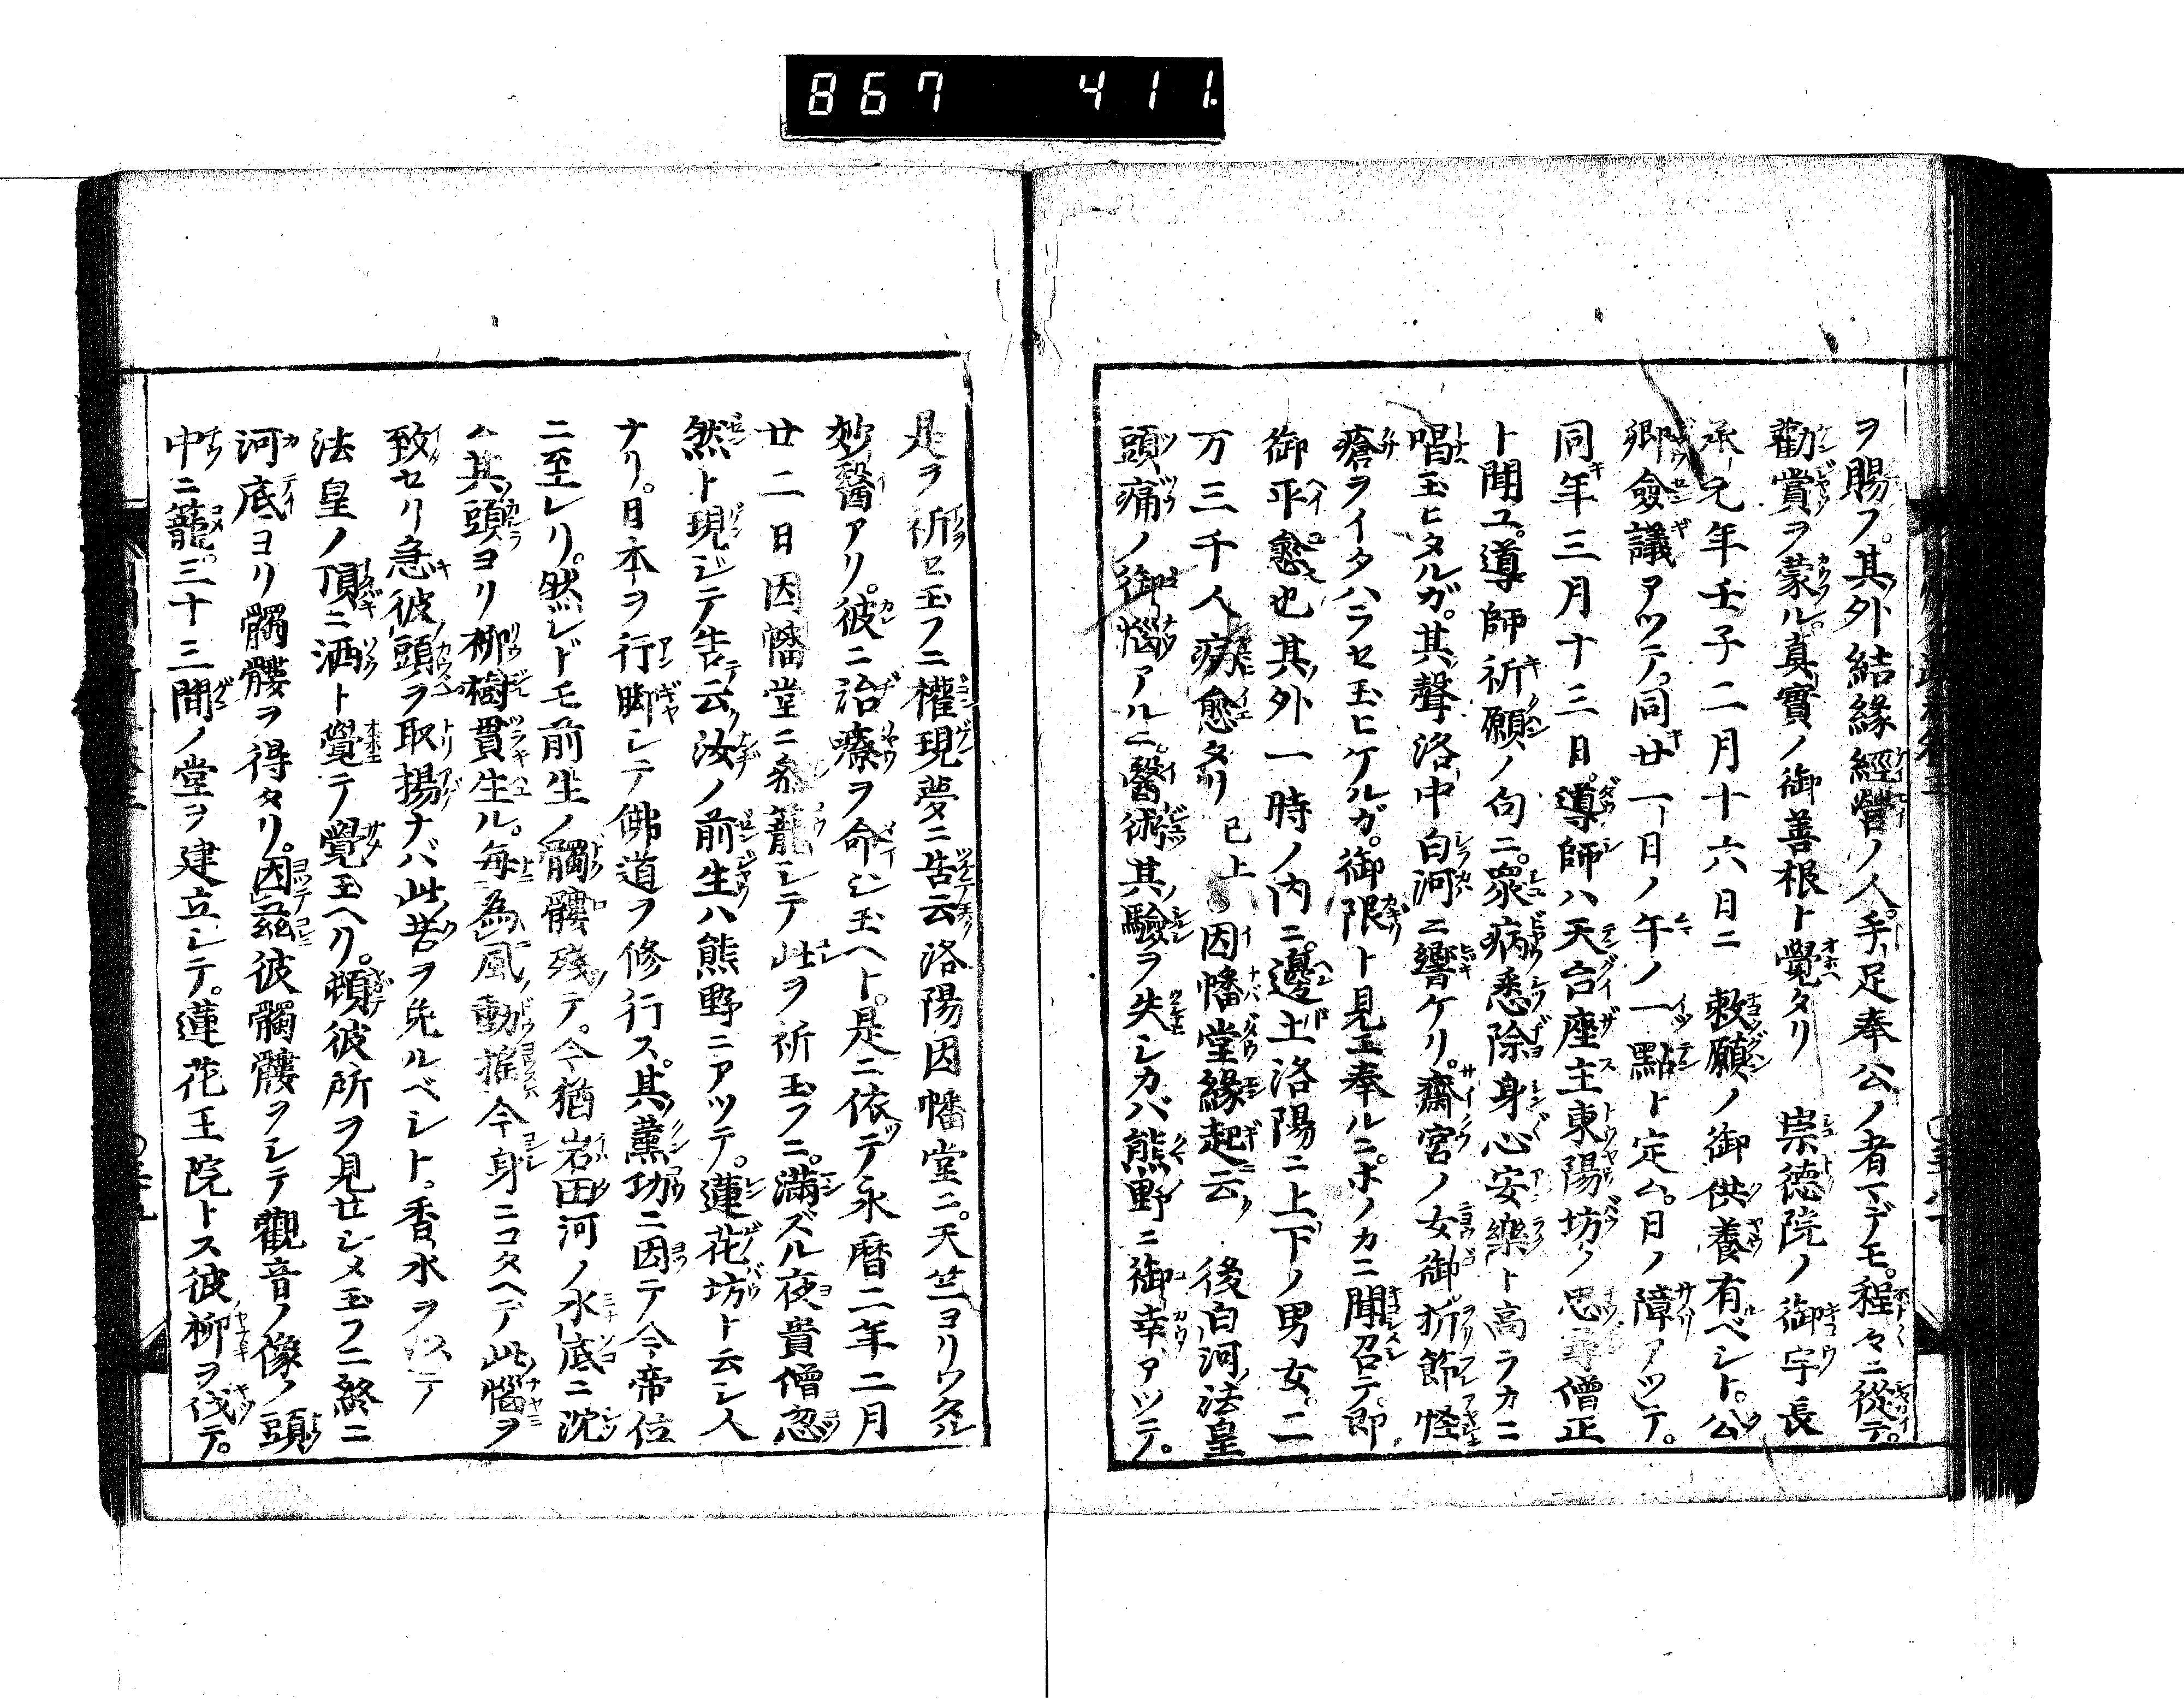 867 411
ヲ賜フ。其外結緣經營ノ人。手足奉公ノ者マデモ。程々ニ從テ。
勸賞ヲ蒙ル。真實ノ御善根ト覺タリ 崇德院ノ御宇長
承元年壬子二月十六日ニ 敕願ノ御供養有ベシト。公
卿僉議アツテ。同廿一日ノ午ノ一點ト定ム。日ノ障アツテ。
同年三月十三日。導師ハ天台座主東陽坊ノ忠尋僧正
ト聞ユ。導師祈願ノ句ニ。眾病悉除身心安樂ト高ラカニ
唱玉ヒタルガ。其聲洛中白河ニ響ケリ。齋宮ノ女御。折節怪
瘡ヲイタハラセ玉ヒケルガ。御限ト見玉奉ルニ。ホノカニ聞召テ。即
御平愈也其外一時ノ内ニ。邊土洛陽ニ上下ノ男女。二
万三千人病愈タリ 已上 因幡堂緣起云 後白河法皇
頭痛ノ御惱アルニ。醫術其驗ヲ失シカバ熊野ニ御幸アツテ。
是ヲ祈セ玉フニ權現夢ニ告云洛陽因幡堂ニ。天竺ヨリワタル
妙醫アリ。彼ニ治療ヲ命ジ玉ヘト。是ニ依テ永曆二年二月
廿二日因幡堂ニ參籠シテ此ヲ祈玉フニ。滿ズル夜貴僧忽
然ト現ジテ告云汝ノ前生ハ熊野ニアツテ。蓮花坊ト云シ人
ナリ。日本ヲ行脚シテ佛道ヲ修行ス。其薰功ニ因テ今帝位
ニ至レリ。然レドモ前生ノ髑髏殘テ。今猶岩田河ノ水底ニ沈
ム其頭ヨリ柳樹貫生ル。每為風動搖今身ニコタヘテ此惱ヲ
致セリ急彼頭ヲ取揚ナバ此苦ヲ免ルベシト。香水ヲ以テ
法皇ノ頂ニ洒ト覺テ覺玉ヘリ。頓彼所ヲ見セシメ玉フニ終ニ
河底ヨリ髑髏ヲ得タリ。因茲彼髑髏ヲシテ觀音ノ像ノ頭
中ニ籠。三十三間ノ堂ヲ建立シテ。蓮花王院トス彼柳ヲ伐テ。